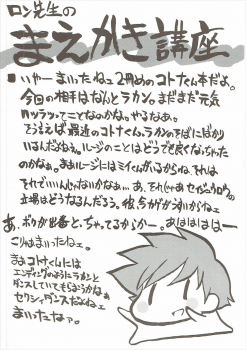 ロン先生の
まえがき講座
■いやーまいったねェ2冊めのコトナくん本だよ。
今回の相手はなんとラカン。まだまだ元気
ハツラツってことなのかな。やるなあ。
そういえば最近のコトナくん、ラカンのそばにばかり
いるんだよねえ。ルージのことはどうでも良くなっちゃった
のかなぁ。まあルージにはミィくんがいるからね、それは
それでいいんじゃないかなぁ…。あ、それじゃあセイジュウロウの
立場はどうなるんだろう。彼、今カゲがうすいからねェ
あ、ボクが出番とっちゃってるからかー。あはははははー
こりゃまいったねェ。
まぁコトナくんには
エンディングのようにラカンと
ダンスしていてもらおうかなぁ
セクシィダンスだよねェ
まいったなァ。